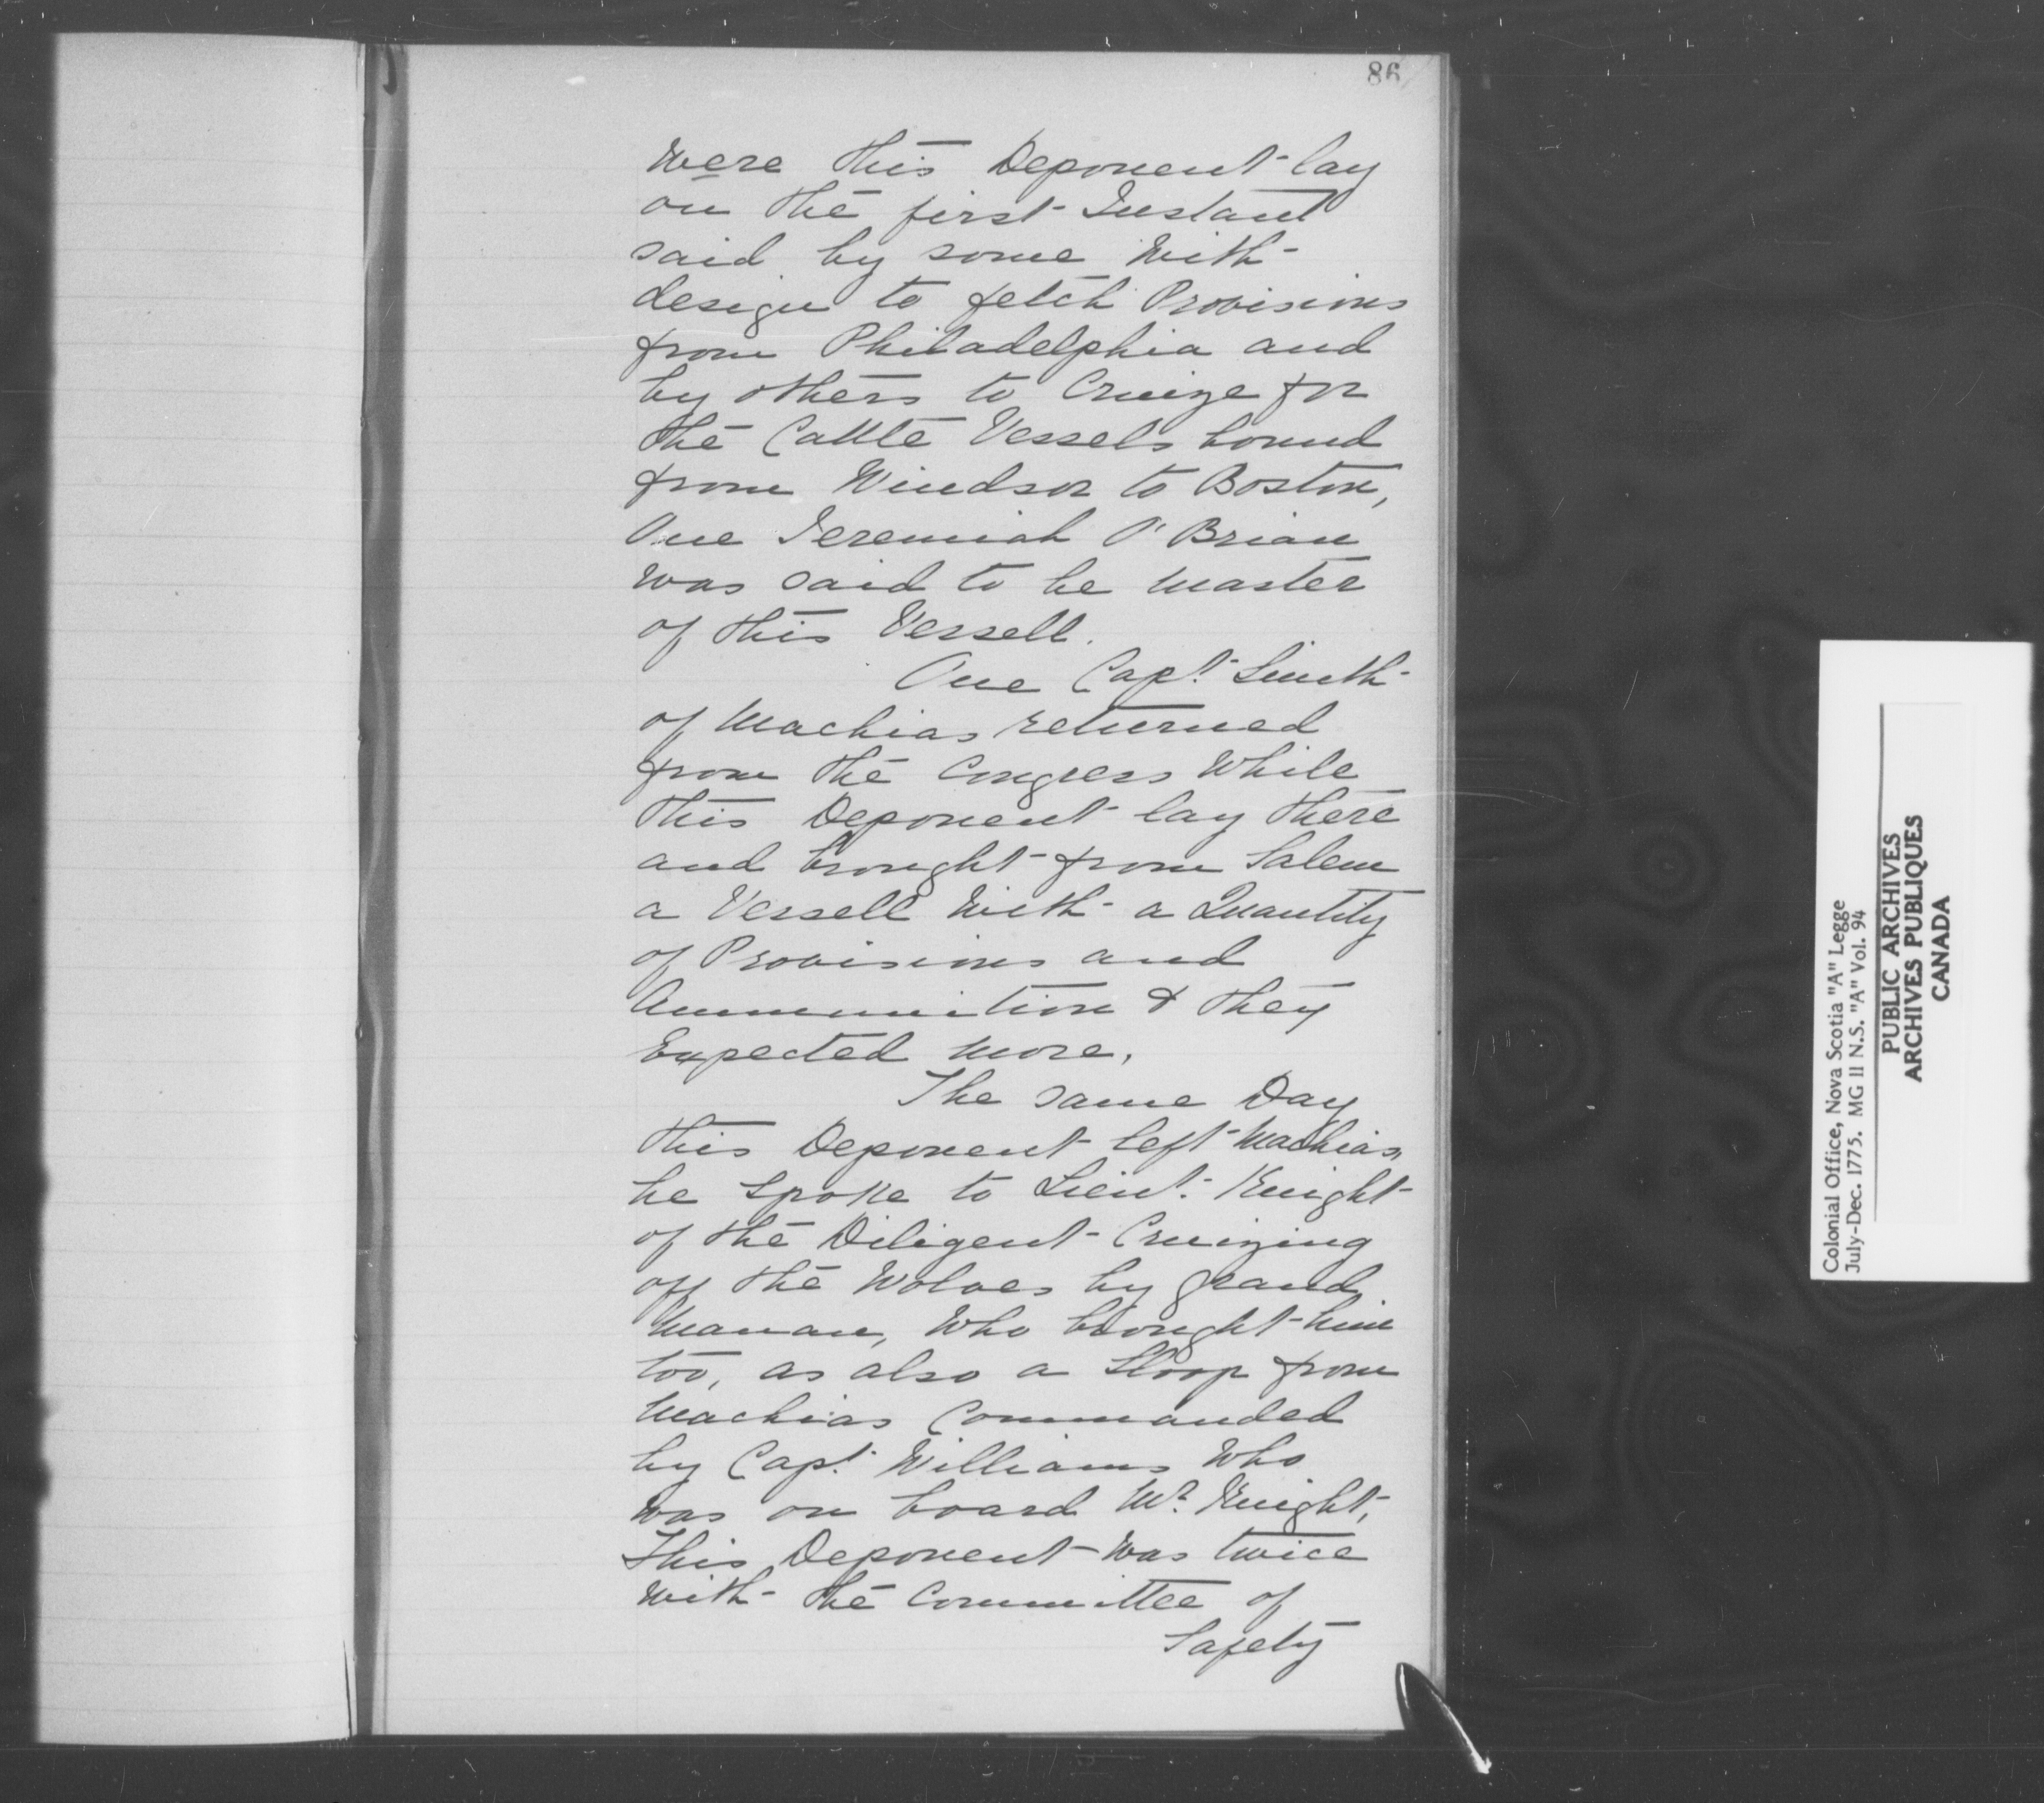 86
Were this Deponent lay
on the first Instant
said by some With
design to fetch Provisions
from Philadelphia and
by others to Cruize for
the Cattle Vessels bound
from Windsor to Boston,
One Jeremiah O'Brian
was said to be Master
of this Vessell.
One Capt. Smith
of Machias returned
from the Congress While
this Deponent lay there
and brought from Salem
a Vessell With a Quantity
of Provisions and
Ammunition & they
Expected More.
The same Day
this Deponent left Machias,
he Spoke to Lieut. Knight
of the Diligent Cruizing
off the Wolves by grand
Manan, Who brought him
too, as also a Sloop from
Machias Commanded
by Capt. Williams Who
was on board Mr. Knight,
This Deponent Was twice
With the Committee of
Safety
Colonial Office, Nova Scotia "A" Legge
July-Dec. 1775. MG 11 N.S. "A" Vol. 94
PUBLIC ARCHIVES
ARCHIVES PUBLIQUES
CANADA